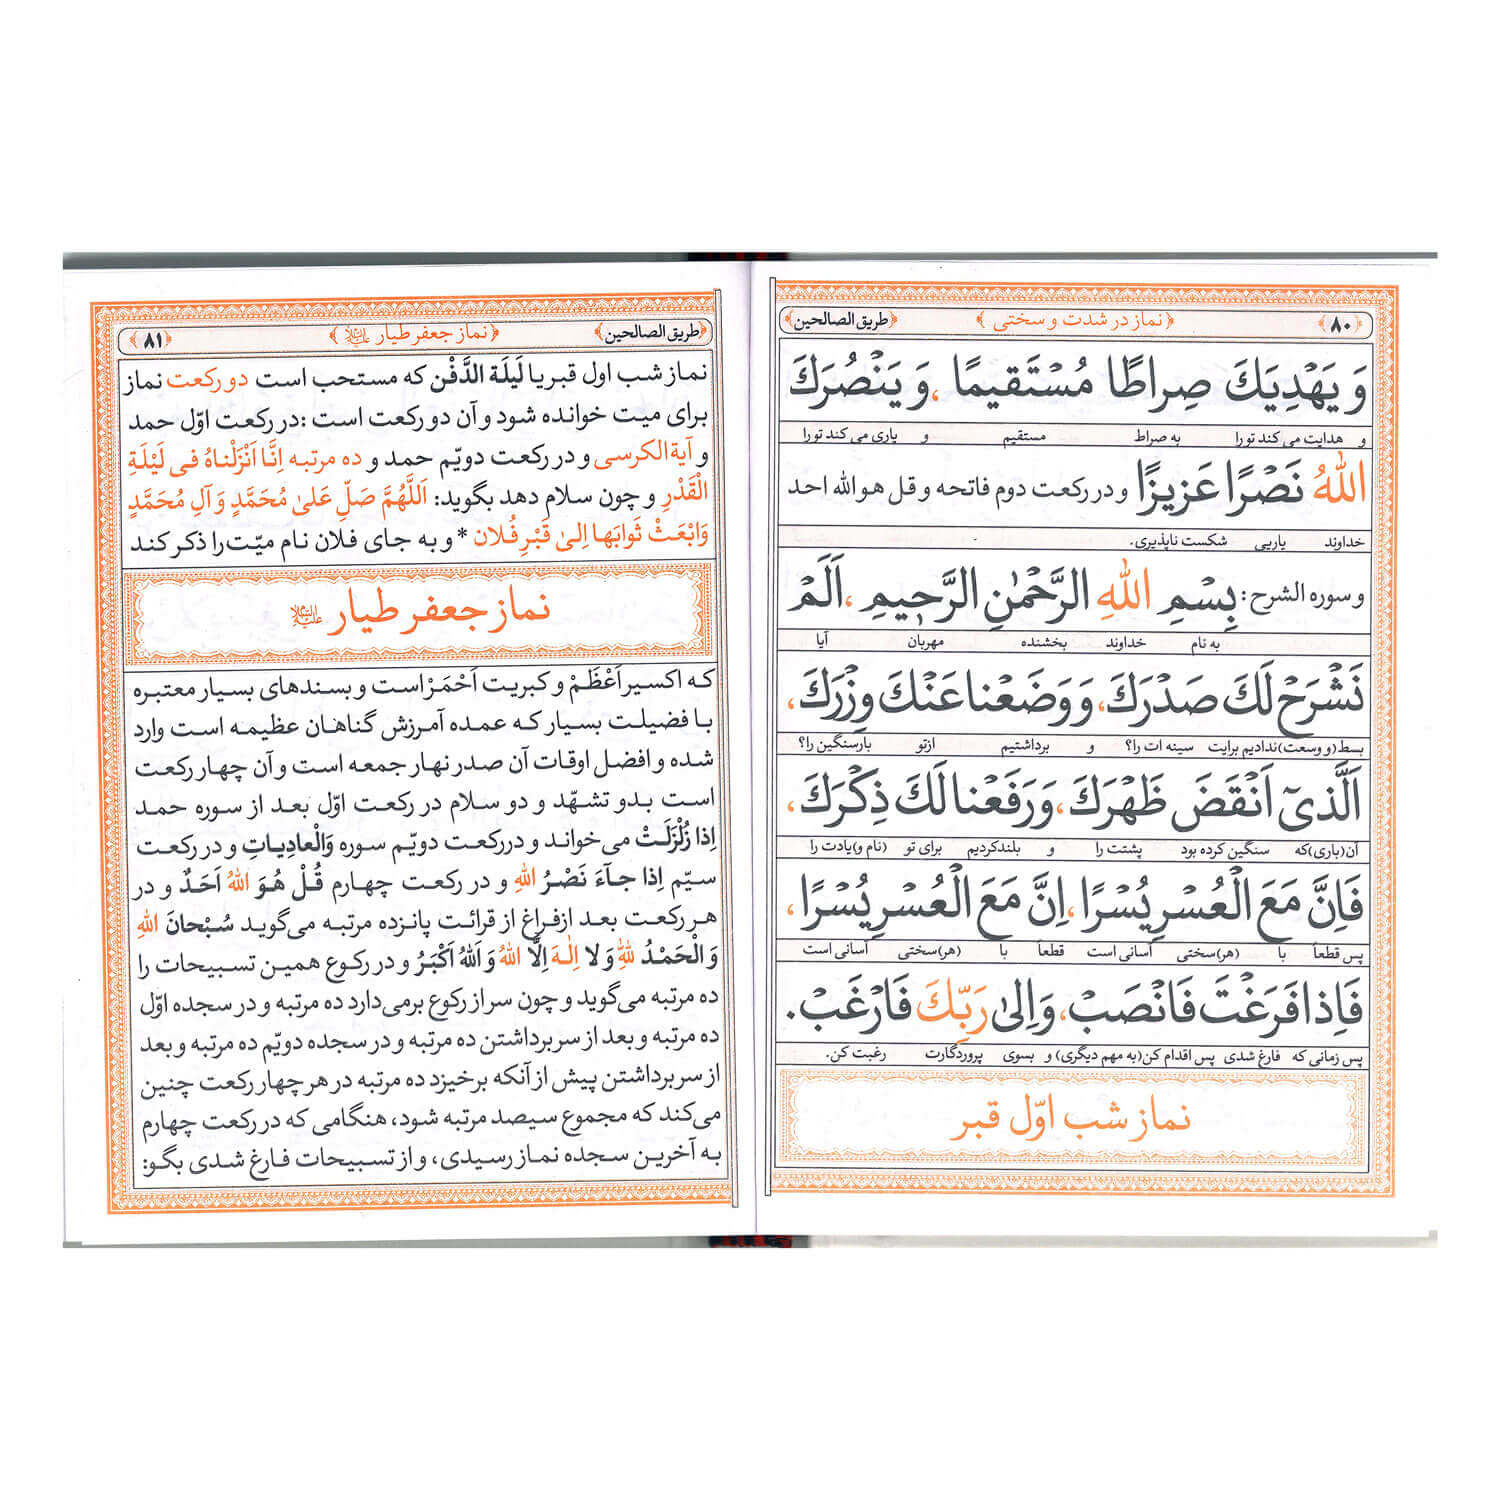 طریق الصالحین ﴿نماز در شدت و سختی﴾ ﴿۸۰﴾
وَ یَهْدِیَكَ صِراطًا مُسْتَقیمًا، وَ یَنْصُرَكَ
و هدایت می کند تو را به صراط مستقیم و یاری می کند تو را
اللهُ نَصْرًا عَزیزًا و در رکعت دوم فاتحه و قل هو الله احد
خداوند یاریی شکست ناپذیری.
و سوره الشرح: بِسْمِ اللهِ الرَّحْمٰنِ الرَّحیمِ، اَلَمْ
به نام خداوند بخشنده مهربان آیا
نَشْرَحْ لَكَ صَدْرَكَ، وَ وَضَعْنا عَنْكَ وِزْرَكَ،
بسط(و وسعت)ندادیم برایت سینه ات را؟ و برداشتیم ازتو بارسنگین را؟
اَلَّذیٓ اَنْقَضَ ظَهْرَكَ، وَ رَفَعْنا لَكَ ذِكْرَكَ،
آن(باری)که سنگین کرده بود پشتت را و بلندکردیم برای تو (نام و)یادت را
فَاِنَّ مَعَ الْعُسْرِ یُسْرًا، اِنَّ مَعَ الْعُسْرِ یُسْرًا،
پس قطعاً با (هر)سختی آسانی است قطعاً با (هر)سختی آسانی است
فَاِذا فَرَغْتَ فَانْصَبْ، وَ اِلیٰ رَبِّكَ فَارْغَبْ.
پس زمانی که فارغ شدی پس اقدام کن(به مهم دیگری) و بسوی پروردگارت رغبت کن.
نماز شب اوّل قبر
﴿طریق الصالحین﴾ ﴿نماز جعفر طیار علیه السلام﴾ ﴿۸۱﴾
نماز شب اول قبر یا لَیلَة الدَّفْن که مستحب است دو رکعت نماز
برای میت خوانده شود و آن دو رکعت است :در رکعت اوّل حمد
و آیة الکرسی و در رکعت دویّم حمد و ده مرتبه اِنَّا اَنْزَلْناهُ فی لَیْلَةِ
الْقَدْرِ و چون سلام دهد بگوید: اَللّهُمَّ صَلِّ عَلیٰ مُحَمَّدٍ وَ آلِ مُحَمَّدٍ
وَابْعَثْ ثَوابَها اِلیٰ قَبْرِ فُلان * و به جای فلان نام میّت را ذکر کند
نماز جعفر طیار علیه السلام
که اکسیر اَعْظَمْ و کبریت اَحْمَرْ است و بسندهای بسیار معتبره
با فضیلت بسیار که عمده آمرزش گناهان عظیمه است وارد
شده و افضل اوقات آن صدر نهار جمعه است و آن چهار رکعت
است بدو تشهّد و دو سلام در رکعت اوّل بعد از سوره حمد
اِذا زُلْزِلَتْ می‌خواند و دررکعت دویّم سوره وَالْعادِیاتِ و در رکعت
سیّم اِذا جآءَ نَصْرُ اللهِ و در رکعت چهارم قُلْ هُوَ اللهُ اَحَدٌ و در
هر رکعت بعد ازفراغ از قرائت پانزده مرتبه می‌گوید سُبْحانَ اللهِ
وَ الْحَمْدُ لِلّٰهِ وَ لا اِلٰهَ اِلَّا اللهُ وَ اللهُ اَكْبَرُ و در رکوع همین تسبیحات را
ده مرتبه می‌گوید و چون سر از رکوع برمی‌دارد ده مرتبه و در سجده اوّل
ده مرتبه و بعد از سربرداشتن ده مرتبه و در سجده دویّم ده مرتبه و بعد
از سربرداشتن پیش از آنکه برخیزد ده مرتبه در هر چهار رکعت چنین
می‌کند که مجموع سیصد مرتبه شود، هنگامی که در رکعت چهارم
به آخرین سجده نماز رسیدی، و از تسبیحات فارغ شدی بگو: